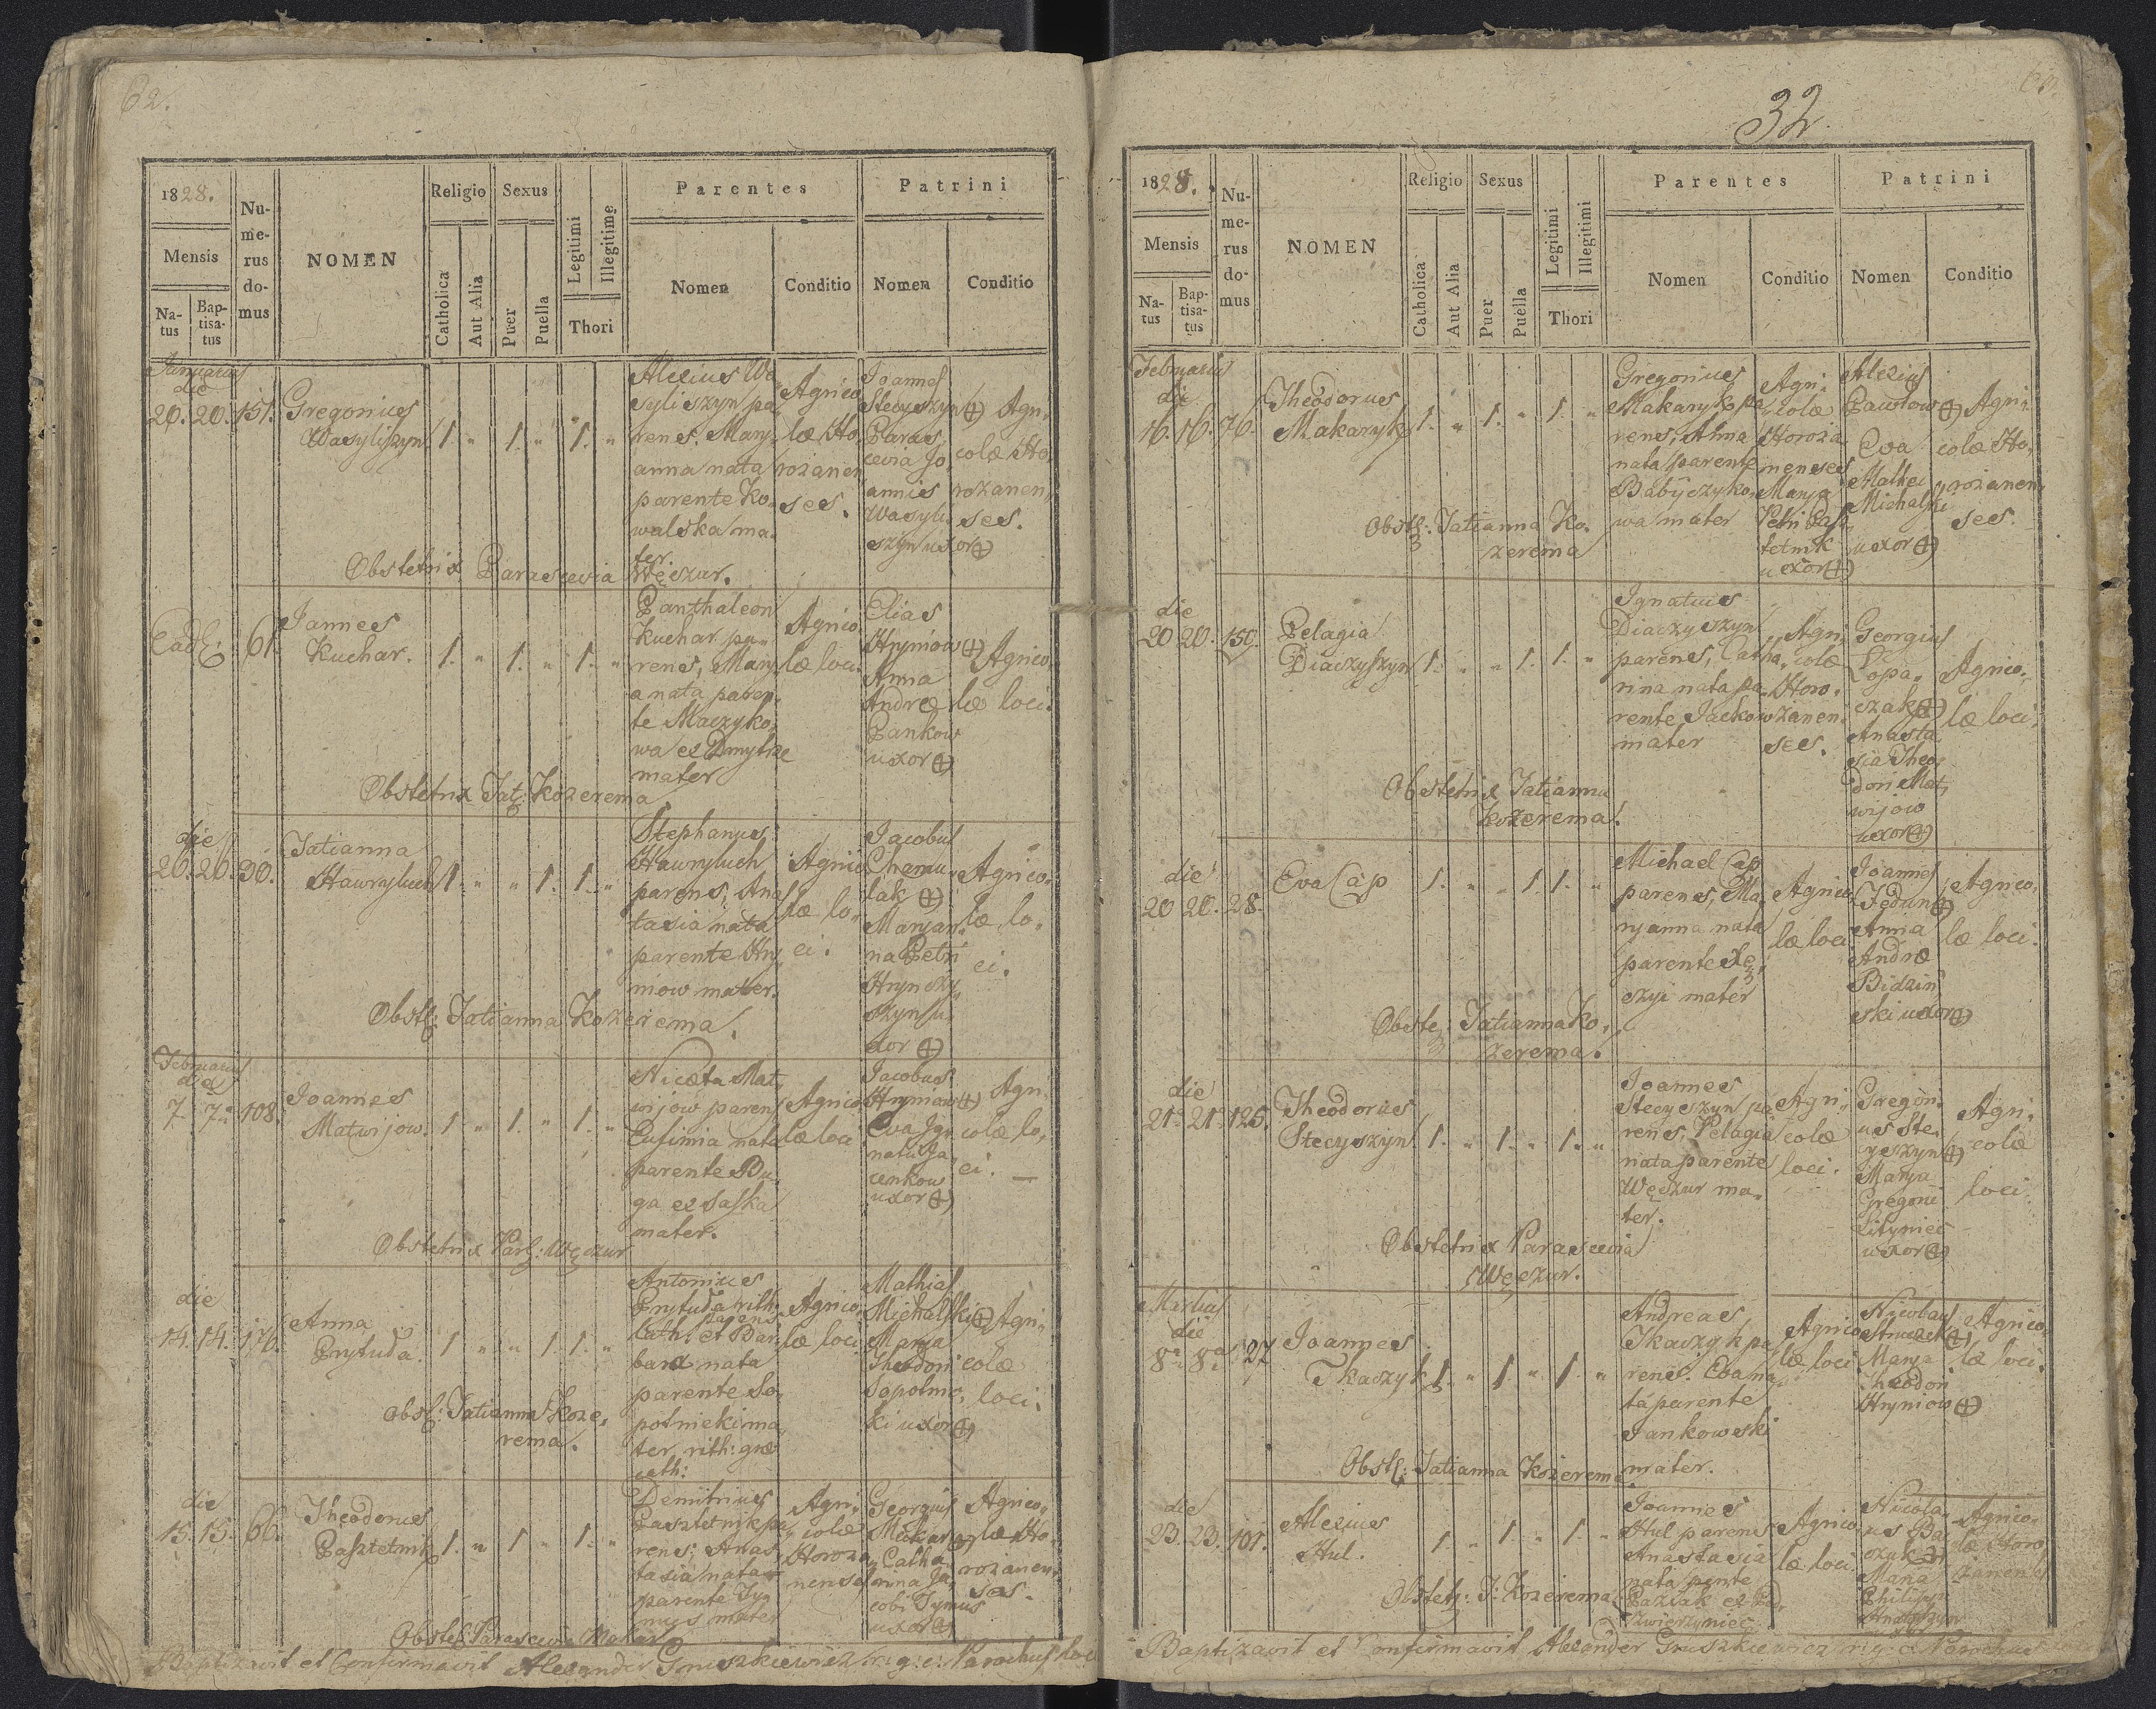 62.
1828.
Mensis
Na-
tus
Bap-
tisa-
tus
Nu-
me-
rus
do-
mus
NOMEN
Religio
Catholica
Aut Alia
Sexus
Puer
Puella
Legitimi
Illegitime
Thori
Parentes
Nomen
Conditio
Patrini
Nomen
Conditio
Januarius
die
20. 20. 151.
Gregorius
Wasyliszyn.
1. " 1. " 1. "
Alexius Wa
syliszyn pa
rens, Mary
anna nata
parente Ko-
walska ma-
ter.
Agrico
læ Ho,
rożanen
ses.
Joannes
Stecyszyn (+)
Paras,
cevia Jo,
annis
Wasyli
szyn uxor (+)
Agri,
colæ Ho,
rożanen,
ses.
Obstetrix Parascevia Węczur.
Ead: 61.
Joannes
Kuchar.
1. " 1. " 1. "
Panthaleon
Kuchar pa"
rens, Mary
a nata paren-
te Maczyko,
wa es Dmytre
mater
Agrico
læ loci.
Elias
Hryniow (+)
Anna
Andræ
Pankow
uxor (+)
Agrico,
læ loci.
Obstetrix Tat: Kozerema
die
20. 20. 90.
Tatianna
Hawryluch
1. " " 1. 1. "
Stephanus
Hawryluch
parens, Anas
tasia nata
parente Hry
niow mater.
Agrico
læ lo"
ci.
Jacobus
Chamu"
lak (+)
Maryan"
na Petri
Hrynczy,
szyn u,
xor (+)
Agrico,
læ lo"
ci.
Obst: Tatianna Kozerema.
Februarius
die
7. 7. 108.
Joannes
Matwijow.
1. " 1. " 1. "
Nicæta Mat,
wijow parens
Eufimia nata
parente Du,
ga es Saska
mater.
Agrico
læ loci
Jacobus
Hryniow (+)
Eva Ig,
natii Ja,
cenkow
uxor (+)
Agri
colæ lo,
ci. —
Obstetrix Par: Węczur
die
14. 14. 176.
Anna
Prytuła.
1. " " 1. 1. "
Antonius
Prytuła rith:
parens
Lath. et Bar,
bara nata
parente So,
polnicki ma
ter, rith: græ
cath:
Agrico,
læ loci
Mathias
Michalski (+)
Marya
Theodori
Sopolnic,
ki uxor (+)
Agri"
colæ
loci.
Obst: Tatianna Koze,
rema.
die
15. 15. 66.
Theodorus
Pasztetnik
1. " 1 " 1. "
Demitrius
Pasztetnik pa
rens; Anas,
tasia nata
parente Ty,
mus mater
Agri,
colæ
Horoża
nenses
Georgius
Makar (+)
Catha,
rina Ja,
cobi Tymus
uxor (+)
Agrico"
læ Ho,
rożanen,
ses.
Obstet: Parascevia Makar
Baptizavit et Confirmavit Alexander Gruszkiewicz r: g: c: Parochus loci
32.
1828.
Mensis
Na-
tus
Bap-
tisa-
tus
Nu-
me-
rus
do-
mus
NOMEN
Religio
Catholica
Aut Alia
Sexus
Puer
Puella
Legitimi
Illegitimi
Thori
Parentes
Nomen
Conditio
Patrini
Nomen
Conditio
Februarius
die
16. 16. 76.
Theodorus
Makaryk
1. " 1. " 1. "
Gregorius
Makaryk pa
rens, Anna
nata parente
Babyczyko,
wa mater
Agri,
colæ
Horoża
nenses
Marya
Petri Pasz
tetnik
uxor (+)
Alexius
Pawłow (+)
Eva
Mathei
Michalski
uxor (+)
Agri"
colæ Ho,
rożanen,
ses.
Obst: Tatianna Ko,
zerema
die
20 20. 150.
Pelagia
Diaczyszyn
1. " " 1. 1. "
Ignatius
Diaczyszyn
parens, Catha,
rina nata pa
rente Jackow
mater
Agri
colæ
Horo,
żanen,
ses.
Georgius
Łopa"
czak (+)
Anasta
sia Theo,
dori Mat,
wijow
uxor (+)
Agrico,
læ loci,
Obstetrix Tatianna
Kozerema!
die
20 20. 28.
Eva Cap
1. " " 1. 1. "
Michael Cap
parens, Ma
ryanna nata
parente
mater
Agrico
læ loci
Joannes
Fedun (+)
Anna
Andræ
Bidziń,
ski uxor (+)
Agrico,
læ loci.
Obste: Tatianna Ko,
zerema.
die
21. 21. 125.
Theodorus
Stecyszyn
1. " 1. " 1. "
Joannes
Stecyszyn pa
rens, Pelagia
nata parente
Węczur ma"
ter.
Agri,
colæ
loci.
Gregori
us Ste,
cyszyn (+)
Marya
Gregorii
Lityniec
uxor (+)
Agri,
colæ
loci
Obstetrix Parascevia
Węczur.
Martius
die
8. 8. 27
Joannes
Tkaczyk
1. " 1 " 1. "
Andreas
Tkaczyk pa
rens. Eva na,
ta parente
Jankowski
mater.
Agrico
læ loci
Nicolaus
(+)
Marya
Theodori
Hryniow (+)
Agrico,
læ loci.
Obst: Tatianna Kozerema
die
23. 23. 101.
Alexius
Hul.
1. " 1. " 1. "
Joannes
Hul parens
Anastasia
nata pente
Paziak
Zwierzyniec
Agrico
læ loci.
Nicola
us
Maria
Philippi
Agrico"
læ Horo
żanenses
Obstetr: T: Kozerema
Baptizavit et Confirmavit Alexander Gruszkiewicz r: g: c: Parochus